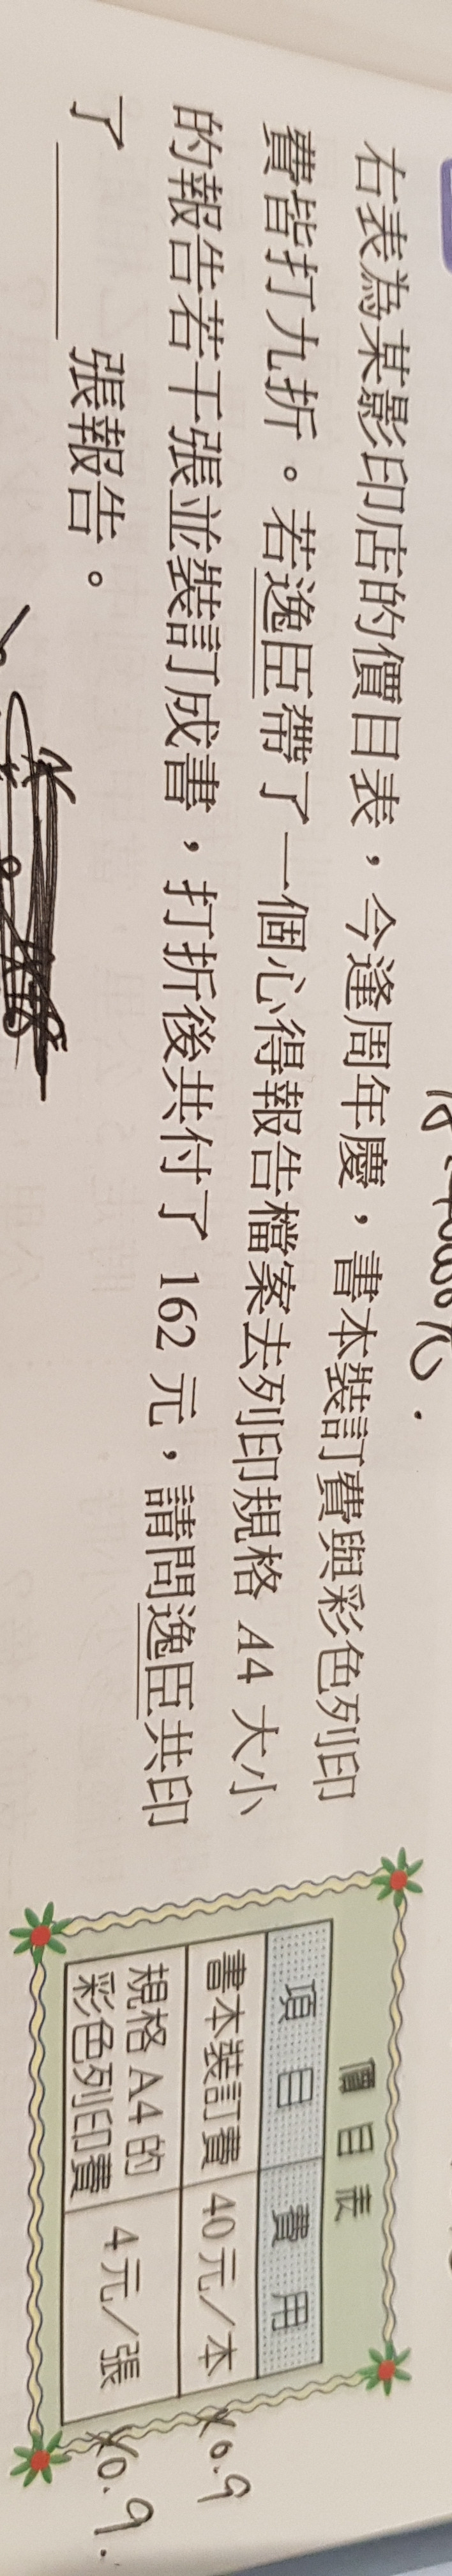 右表為某影印店的價目表，今逢周年慶，書本裝訂費與彩色列印
費皆打九折。若逸臣帶了一個心得報告檔案去列印規格 A4 大小
的報告若干張並裝訂成書，打折後共付了 162 元，請問逸臣共印
了＿＿＿張報告。
價目表
項目 費用
書本裝訂費 40元／本 ×0.9
規格 A4 的
彩色列印費 4元／張 ×0.9.